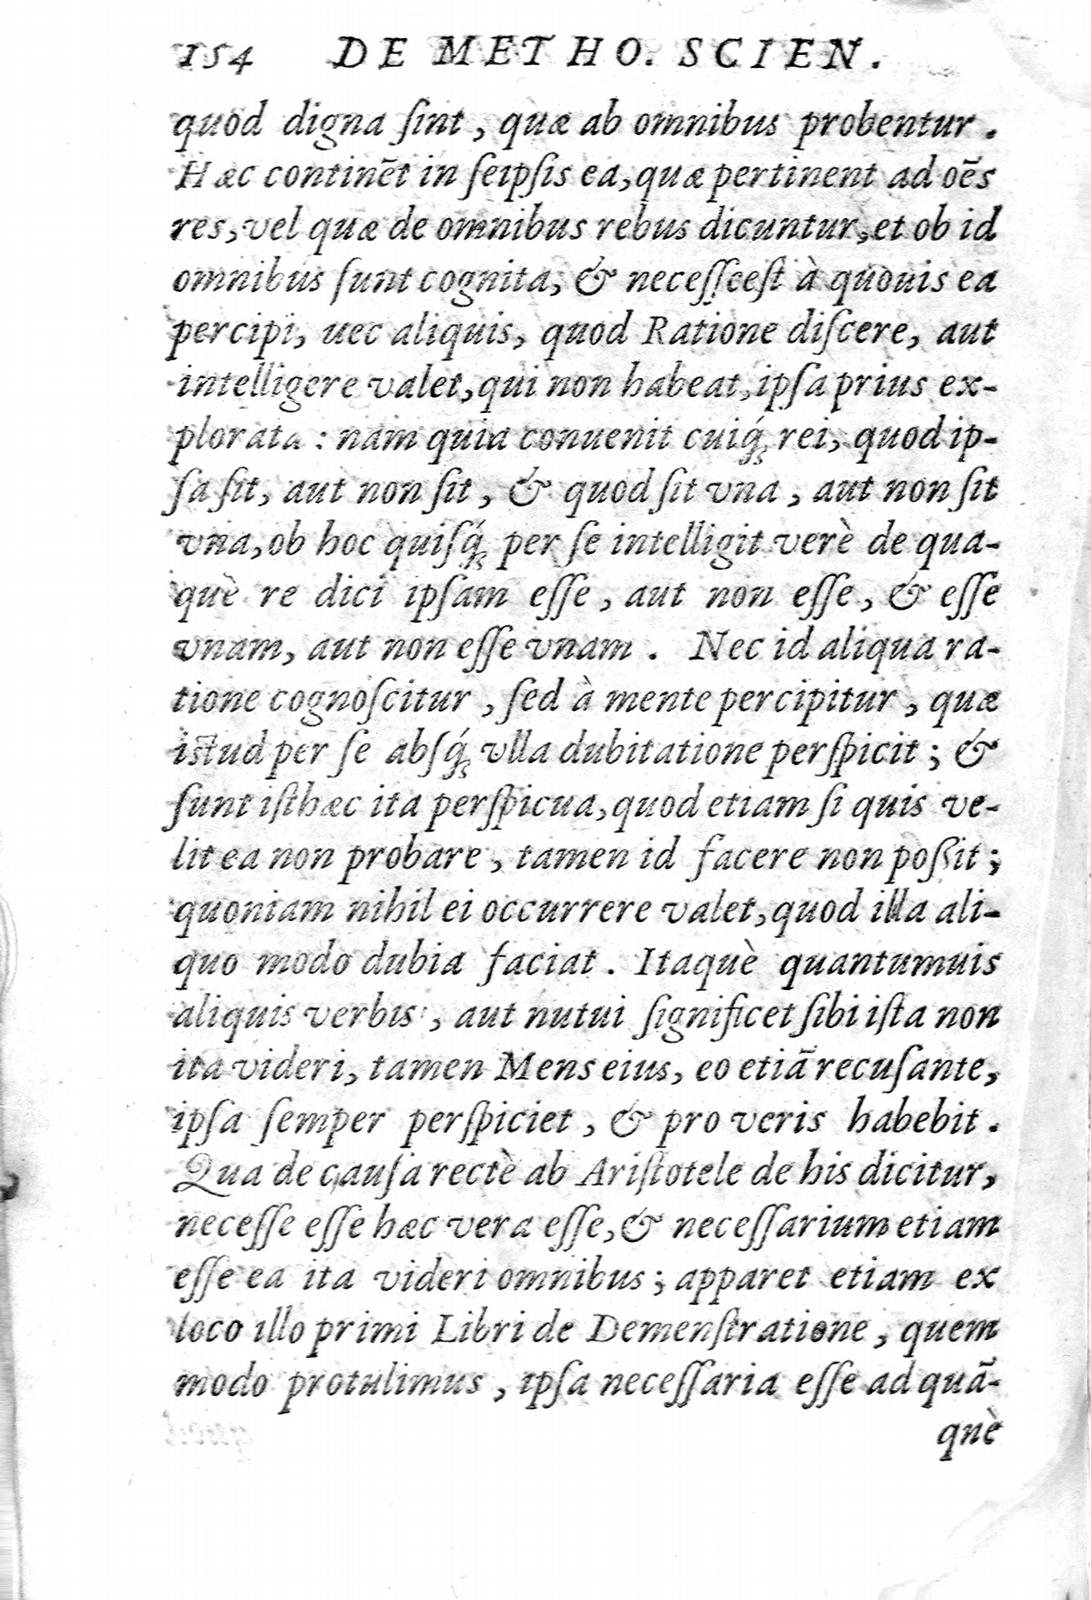 154 DE METHO. SCIEN.
quòd digna ſint, quæ ab omnibus probentur.
Hæc continēt in ſeipſis ea, quæ pertinent ad oēs
res, vel quæ de omnibus rebus dicuntur, et ob id
omnibus ſunt cognita, & neceſſceſt à quouis ea
percipi, uec aliquis, quod Ratione diſcere, aut
intelligere valet, qui non habeat, ipſa prius ex-
plorata: nam quia conuenit cuiq́; rei, quod ip-
ſa ſit, aut non ſit, & quod ſit vna, aut non ſit
vna, ob hoc quiſq́; per ſe intelligit verè de qua-
què re dici ipſam eſſe, aut non eſſe, & eſſe
vnam, aut non eſſe vnam. Nec id aliqua ra-
tione cognoſcitur, ſed à mente percipitur, quæ
iſtud per ſe abſq́; vlla dubitatione perſpicit; &
ſunt iſthæc ita perſpicua, quod etiam ſi quis ve-
lit ea non probare, tamen id facere non poßit;
quoniam nihil ei occurrere valet, quod illa ali-
quo modo dubia faciat. Itaquè quantumuis
aliquis verbis, aut nutui ſignificet ſibi iſta non
ita videri, tamen Mens eius, eo etiā recuſante,
ipſa ſemper perſpiciet, & pro veris habebit.
Qua de cauſa rectè ab Ariſtotele de his dicitur,
neceſſe eſſe hæc vera eſſe, & neceſſarium etiam
eſſe ea ita videri omnibus; apparet etiam ex
loco illo primi Libri de Demenſtratione, quem
modo protulimus, ipſa neceſſaria eſſe ad quā-
què